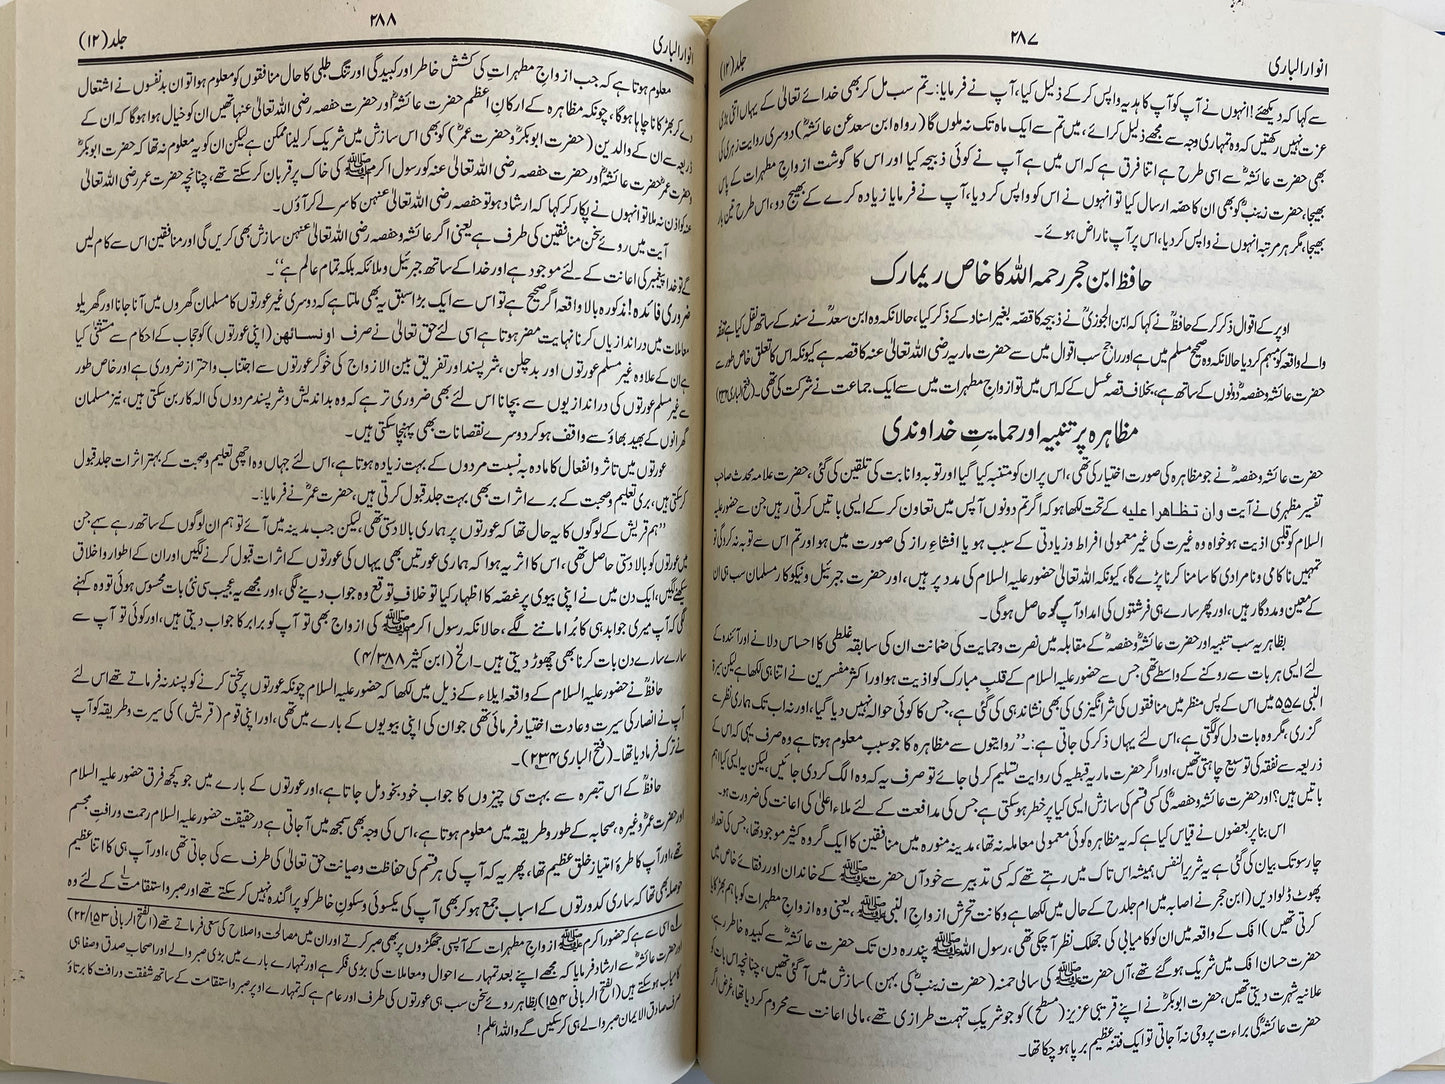 انوار الباری
۲۸۷
جلد (۱۲)
سے کہا کہ دیکھئے! انہوں نے آپ کو آپ کا ہدیہ واپس کر کے ذلیل کیا، آپ نے فرمایا:۔ تم سب مل کر بھی خدائے تعالیٰ کے یہاں اتنی بڑی
عزت نہیں رکھتیں کہ وہ تمہاری وجہ سے مجھے ذلیل کرائے، میں تم سے ایک ماہ تک نہ ملوں گا (رواہ ابن سعد عن عائشہؓ) دوسری روایت زہری کی
بھی حضرت عائشہؓ سے اسی طرح ہے اتنا فرق ہے کہ اس میں ہے آپ نے کوئی ذبیحہ کیا اور اس کا گوشت ازواجِ مطہرات کے پاس
بھیجا، حضرت زینبؓ کو بھی ان کا حصہ ارسال کیا تو انہوں نے اس کو واپس کر دیا، آپ نے فرمایا زیادہ کر کے بھیج دو، اس طرح تین بار
بھیجا، مگر ہر مرتبہ انہوں نے واپس کر دیا، اس پر آپ ناراض ہوئے۔
حافظ ابن حجر رحمہ اللہ کا خاص ریمارک
اوپر کے اقوال ذکر کر کے حافظؒ نے کہا کہ ابن الجوزیؒ نے ذبیحہ کا قصہ بغیر اسناد کے ذکر کیا، حالانکہ وہ ابن سعدؒ نے سند کے ساتھ نقل کیا ہے
والے واقعہ کو مبہم کر دیا حالانکہ وہ صحیح مسلم میں ہے اور راجح سب اقوال میں سے حضرت ماریہ رضی اللہ تعالیٰ عنہ کا قصہ ہے کیونکہ اس کا تعلق خاص طور سے
حضرت عائشہؓ و حفصہؓ دونوں کے ساتھ ہے، بخلاف قصہ عسل کے کہ اس میں تو ازواجِ مطہرات میں سے ایک جماعت نے شرکت کی تھی۔ (فتح الباری
مظاہرہ پر تنبیہ اور حمایتِ خداوندی
حضرت عائشہؓ و حفصہؓ نے جو مظاہرہ کی صورت اختیار کی تھی، اس پر ان کو متنبہ کیا گیا اور توبہ و انابت کی تلقین کی گئی، حضرت علامہ محدث صاحب
تفسیر مظہری نے آیت وان تظاھرا علیہ کے تحت لکھا ہو کہ اگر تم دونوں آپس میں تعاون کر کے ایسی باتیں کرتی رہیں جن سے حضور علیہ
السلام کو قلبی اذیت ہو خواہ وہ غیرت کی غیر معمولی افراط و زیادتی کے سبب ہو یا افشاءِ راز کی صورت میں ہو اور تم اس سے توبہ نہ کرو گی تو
تمہیں ناکامی و نامرادی کا سامنا کرنا پڑے گا، کیونکہ اللہ تعالیٰ حضور علیہ السلام کی مدد پر ہیں، اور حضرت جبرئیل و نیکوکار مسلمان سب ہی ان
کے معین و مددگار ہیں، اور پھر سارے ہی فرشتوں کی امداد آپؐ کو حاصل ہو گی۔
بظاہر یہ سب تنبیہ اور حضرت عائشہؓ و حفصہؓ کے مقابلہ میں نصرت و حمایت کی ضمانت ان کی سابقہ غلطی کا احساس دلانے اور آئندہ کے
لئے ایسی ہر بات سے روکنے کے واسطے تھی جس سے حضور علیہ السلام کے قلبِ مبارک کو اذیت ہو اور اکثر مفسرین نے اتنا ہی لکھا ہے لیکن سیرۃ
النبی ۵۵۷ میں اس کے پس منظر میں منافقوں کی شر انگیزی کی بھی نشاندہی کی گئی ہے، جس کا کوئی حوالہ نہیں دیا گیا، اور نہ اب تک ہماری نظر سے
گزری، مگر وہ بات دل کو لگتی ہے، اس لئے یہاں ذکر کی جاتی ہے:۔ ’’روایتوں سے مظاہرہ کا جو سبب معلوم ہوتا ہے وہ صرف یہی کہ اس کے
ذریعہ سے نفقہ کی توسیع چاہتی تھیں، اور اگر حضرت ماریہ قبطیہ کی روایت تسلیم کر لی جائے تو صرف یہ کہ وہ الگ کر دی جائیں، لیکن یہ ایسی کیا اہم
باتیں ہیں؟ اور حضرت عائشہؓ و حفصہؓ کی کسی قسم کی سازش ایسی کیا پر خطر ہو سکتی ہے جس کی مدافعت کے لئے ملاء اعلیٰ کی اعانت کی ضرورت ہو۔
اس بنا پر بعضوں نے قیاس کیا ہے کہ یہ مظاہرہ کوئی معمولی معاملہ نہ تھا، مدینہ منورہ میں منافقین کا ایک گروہ کثیر موجود تھا، جس کی تعداد
چار سو تک بیان کی گئی ہے یہ شریر النفس ہمیشہ اس تاک میں رہتے تھے کہ کسی تدبیر سے خود آں حضرت ﷺ کے خاندان اور رفقائے خاص میں
پھوٹ ڈلوا دیں (ابن حجر نے اصابہ میں ام جلدح کے حال میں لکھا ہے وکانت تحرش ازواج النبی ﷺ، یعنی وہ ازواجِ مطہرات کو باہم بھڑکایا
کرتی تھیں) افک کے واقعہ میں ان کو کامیابی کی جھلک نظر آ چکی تھی، رسول اللہ ﷺ پندرہ دن تک حضرت عائشہؓ سے کبیدہ خاطر رہے،
حضرت حسان افک میں شریک ہو گئے تھے، آں حضرت ﷺ کی سالی حمنہ (حضرت زینبؓ کی بہن) سازش میں آ گئی تھیں، چنانچہ اس بات کو
علانیہ شہرت دیتی تھیں، حضرت ابوبکرؓ نے اپنے قریبی عزیز (مسطح) کو جو شریکِ تہمت طرازی تھے، مالی اعانت سے محروم کر دیا تھا، غرض اگر
حضرت عائشہؓ کی براءت پر وحی نہ آ جاتی تو ایک فتنہ عظیم برپا ہو چکا تھا۔
انوار الباری
۲۸۸
جلد (۱۲)
معلوم ہوتا ہے کہ جب ازواجِ مطہرات کی کشش خاطر اور کبیدگی اور تنگ طلبی کا حال منافقوں کو معلوم ہوا تو ان بد نفسوں نے اشتعال
دے کر بھڑکانا چاہا ہو گا، چونکہ مظاہرہ کے ارکانِ اعظم حضرت عائشہؓ اور حضرت حفصہ رضی اللہ تعالیٰ عنہا تھیں ان کو خیال ہوا ہو گا کہ ان کے
ذریعہ سے ان کے والدین (حضرت ابوبکرؓ و حضرت عمرؓ) کو بھی اس سازش میں شریک کر لینا ممکن ہے لیکن ان کو یہ معلوم نہ تھا کہ حضرت ابوبکرؓ
و حضرت عمرؓ حضرت عائشہؓ اور حضرت حفصہ رضی اللہ تعالیٰ عنہ کو رسول اکرم ﷺ کی خاک پر قربان کر سکتے تھے، چنانچہ حضرت عمر رضی اللہ تعالیٰ
عنہ کو اذن نہ ملا تو انہوں نے پکار کر کہا کہ ارشاد ہو تو حفصہ رضی اللہ تعالیٰ عنہن کا سر لے کر آؤں۔
آیت میں روئے سخن منافقین کی طرف ہے یعنی اگر عائشہؓ و حفصہ رضی اللہ تعالیٰ عنہن سازش بھی کریں گی اور منافقین اس سے کام لیں
گے تو خدا پیغمبر کی اعانت کے لئے موجود ہے اور خدا کے ساتھ جبرئیل و ملائکہ بلکہ تمام عالم ہے‘‘۔
ضروری فائدہ! مذکورہ بالا واقعہ اگر صحیح ہے تو اس سے ایک بڑا سبق یہ بھی ملتا ہے کہ دوسری غیر عورتوں کا مسلمان گھروں میں آنا جانا اور گھریلو
معاملات میں در اندازیاں کرنا نہایت مضر ہوتا ہے اسی لئے حق تعالیٰ نے صرف اونسائھن (اپنی عورتوں) کو حجاب کے احکام سے مستثنیٰ کیا
ہے ان کے علاوہ غیر مسلم عورتوں اور بد چلن، شر پسند اور تفریق بین الازواج کی خوگر عورتوں سے اجتناب و احتراز ضروری ہے اور خاص طور
سے غیر مسلم عورتوں کی در اندازیوں سے بچانا اس لئے بھی ضروری تر ہے کہ وہ بد اندیش و شر پسند مردوں کی آلہ کار بن سکتی ہیں، نیز مسلمان
گھرانوں کے بھید بھاؤ سے واقف ہو کر دوسرے نقصانات بھی پہنچا سکتی ہیں۔
عورتوں میں تاثر و انفعال کا مادہ بہ نسبت مردوں کے بہت زیادہ ہوتا ہے، اس لئے جہاں وہ اچھی تعلیم و صحبت کے بہتر اثرات جلد قبول
کر سکتی ہیں، بری تعلیم و صحبت کے برے اثرات بھی بہت جلد قبول کرتی ہیں، حضرت عمرؓ نے فرمایا:۔
’’ہم قریش کے لوگوں کا یہ حال تھا کہ عورتوں پر ہماری بالا دستی تھی، لیکن جب مدینہ میں آئے تو ہم ان لوگوں کے ساتھ رہے سہے جن
میں عورتوں کو بالا دستی حاصل تھی، اس کا اثر یہ ہوا کہ ہماری عورتیں بھی یہاں کی عورتوں کے اثرات قبول کرنے لگیں اور ان کے اطوار و اخلاق
سیکھنے لگیں، ایک دن میں نے اپنی بیوی پر غصہ کا اظہار کیا تو خلافِ توقع وہ جواب دینے لگی، اور مجھے یہ عجیب سی نئی بات محسوس ہوئی تو وہ کہنے
لگی کہ آپ میری جواب دہی کا بُرا ماننے لگے، حالانکہ رسول اکرم ﷺ کی ازواج بھی تو آپ کو برابر کا جواب دیتی ہیں، اور کوئی تو آپ سے
سارے سارے دن بات کرنا بھی چھوڑ دیتی ہیں۔ الخ (ابن کثیر ۴/۳۸۸)
حافظؒ نے حضور علیہ السلام کے واقعہ ایلاء کے ذیل میں لکھا کہ حضور علیہ السلام چونکہ عورتوں پر سختی کرنے کو پسند نہ فرماتے تھے اس لئے
آپ نے انصار کی سیرت و عادت اختیار فرمائی تھی جو ان کی اپنی بیویوں کے بارے میں تھی، اور اپنی قوم (قریش) کی سیرت و طریقہ کو آپ
نے ترک فرما دیا تھا۔ (فتح الباری ۲۳۴)۔
حافظؒ کے اس تبصرہ سے بہت سی چیزوں کا جواب خود بخود مل جاتا ہے، اور عورتوں کے بارے میں جو کچھ فرق حضور علیہ السلام
اور حضرت عمرؓ وغیرہ، صحابہ کے طور و طریقہ میں معلوم ہوتا ہے، اس کی وجہ بھی سمجھ میں آ جاتی ہے در حقیقت حضور علیہ السلام رحمت و رافتِ مجسم
تھے، اور آپ کا طرۂ امتیاز خلقِ عظیم تھا، پھر یہ کہ آپ کی ہر قسم کی حفاظت و صیانت حق تعالیٰ کی طرف سے کی جاتی تھی، اور آپ ہی کا اتنا عظیم
حوصلہ بھی تھا کہ ساری کدورتوں کے اسباب جمع ہو کر بھی آپ کی یکسوئی و سکونِ خاطر کو پراگندہ نہیں کر سکتے تھے اور صبر و استقامت کے لئے وہ
۱ اسی سے ہے کہ حضور اکرم ﷺ ازواجِ مطہرات کے آپسی جھگڑوں پر بھی صبر کرتے اور ان میں مصالحت و اصلاح کی سعی فرماتے تھے (الفتح الربانی ۲۲/۱۵۳)
اور حضرت عائشہؓ سے ارشاد فرمایا کہ مجھے اپنے بعد تمہارے احوال و معاملات کی بڑی فکر ہے اور تمہارے بارے میں بڑی صبر والے اور اصحابِ صدق و صفا ہی
کامیاب ہو سکتے ہیں (الفتح الربانی ۱۵۴) بظاہر روئے سخن سب ہی عورتوں کی طرف اور عام ہے کہ تمہارے اوپر صبر و استقامت کے ساتھ شفقت و رافت کا برتاؤ
صرف صادق الایمان صبر والے ہی کر سکیں گے واللہ اعلم!